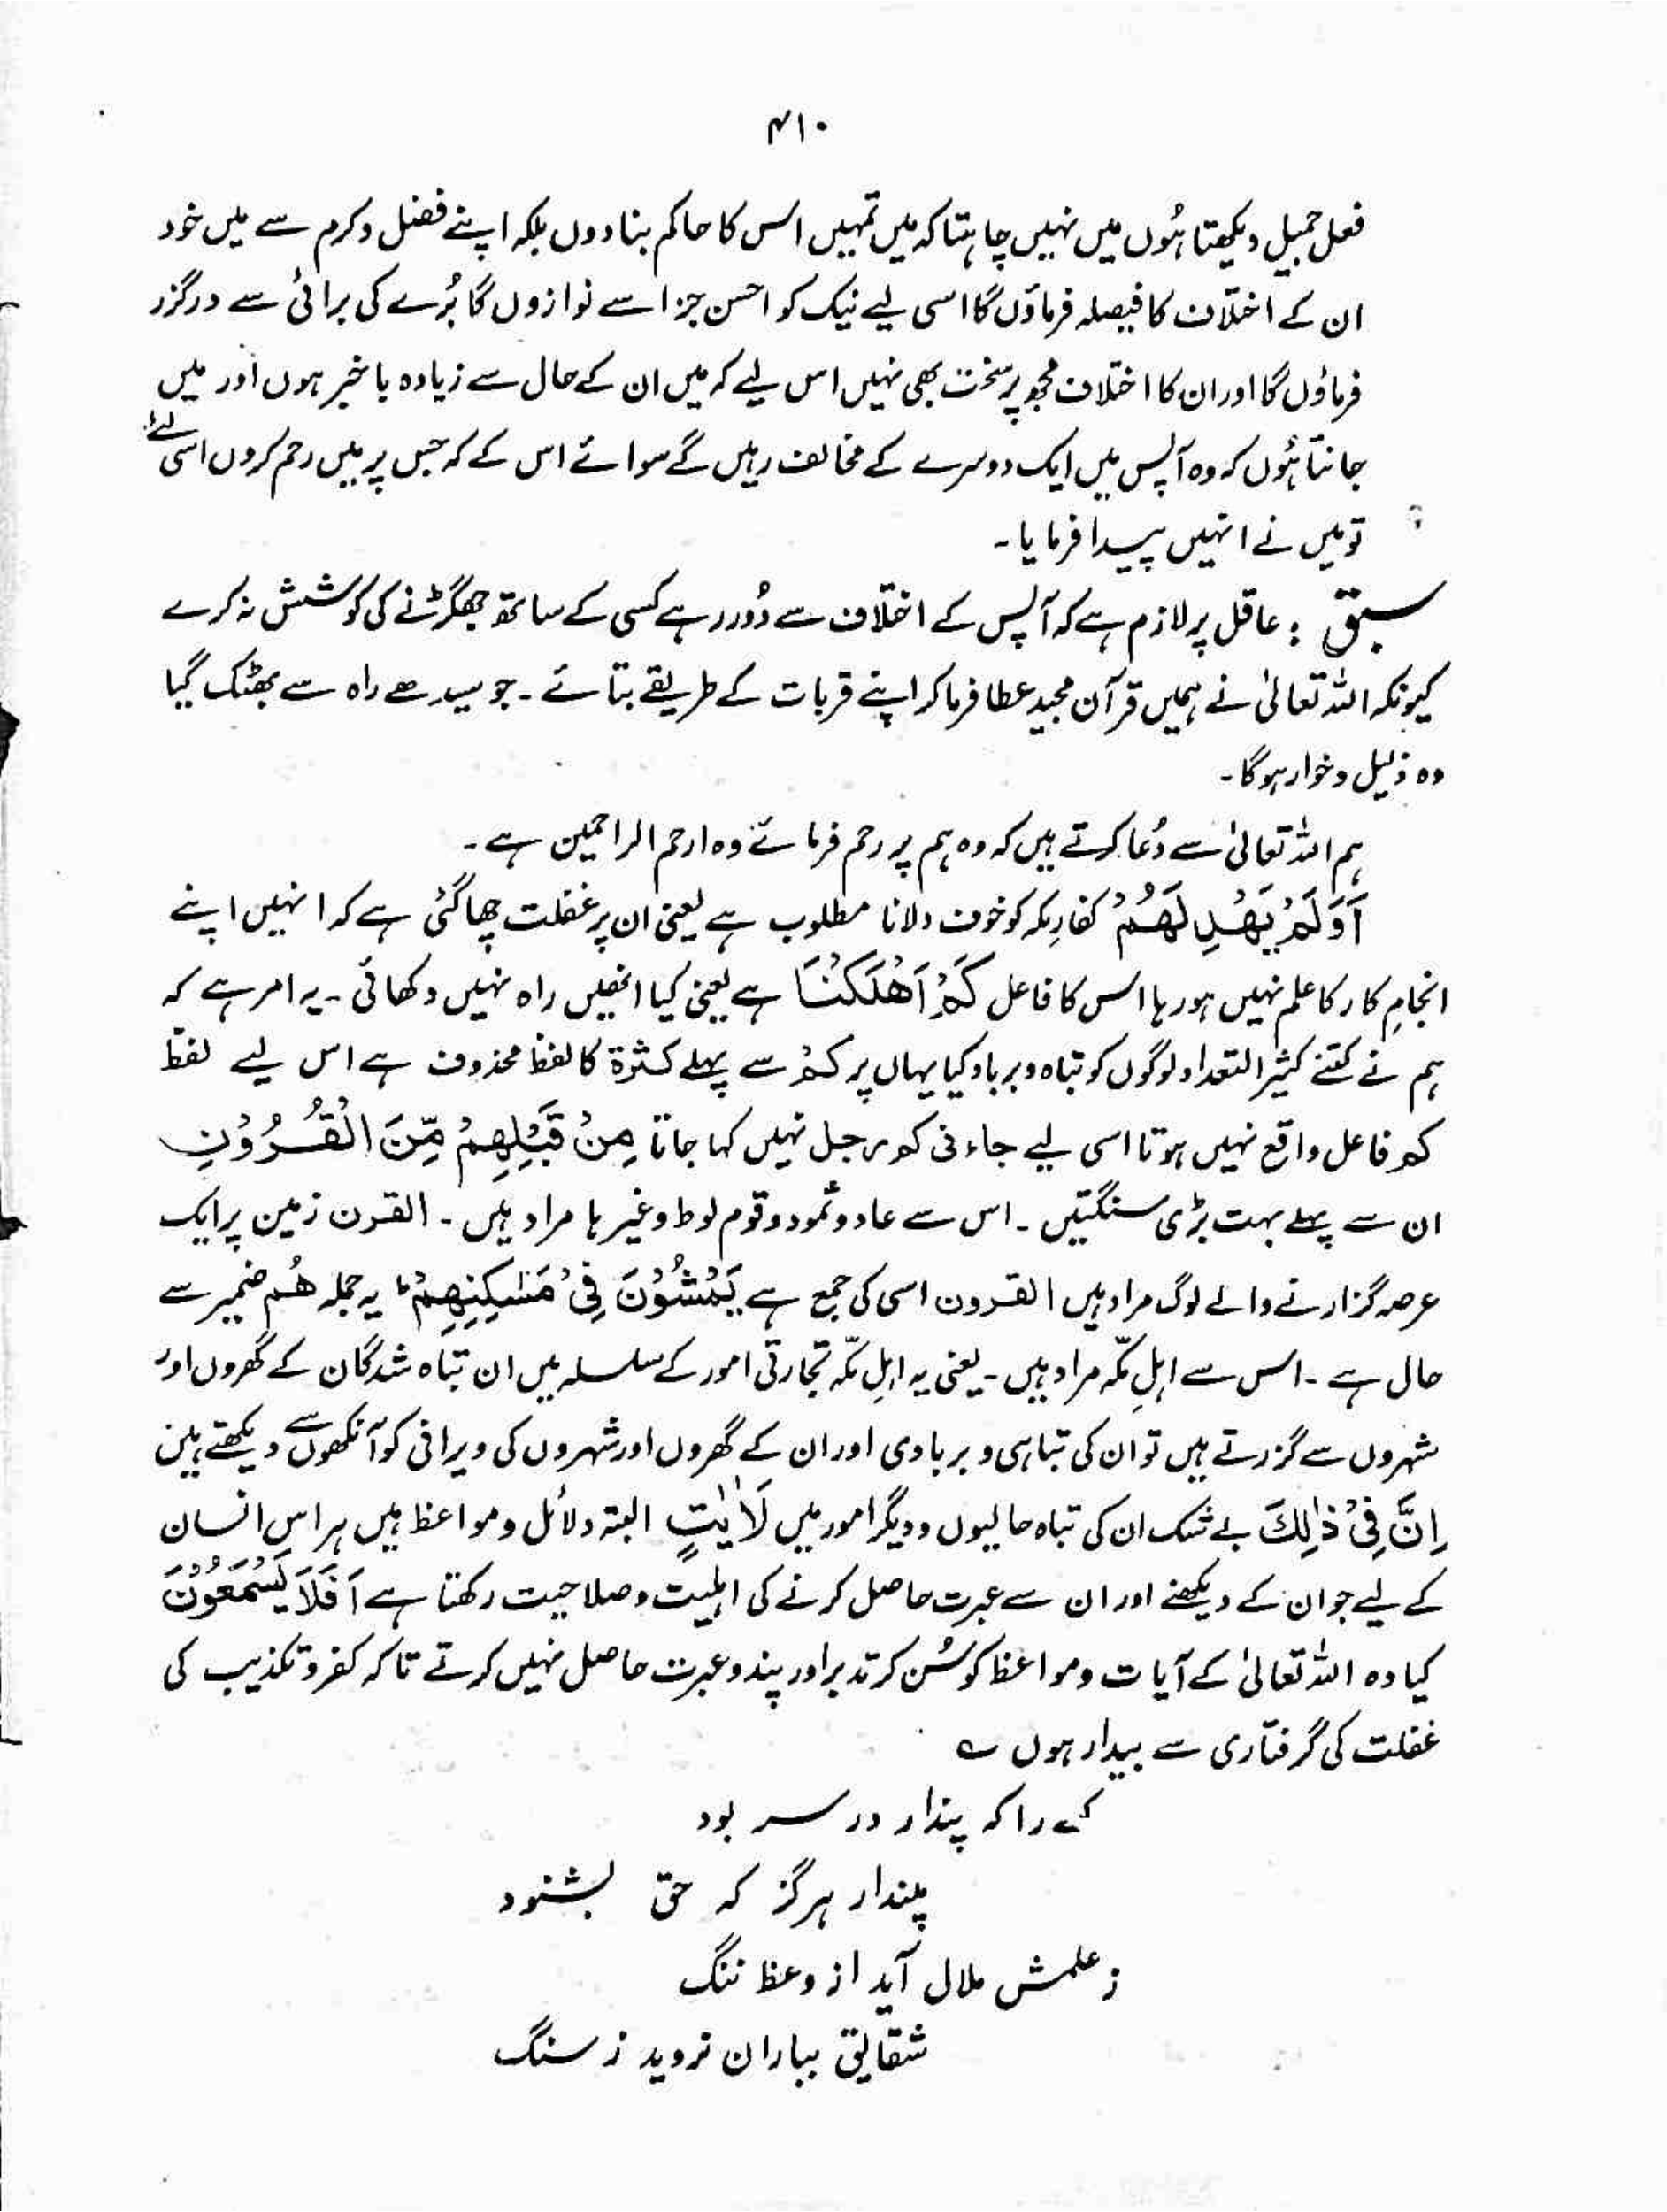 ۴۱۰
فعل جمیل دیکھتا ہُوں میں نہیں چاہتا کہ میں تمہیں اس کا حاکم بنا دوں بلکہ اپنے فضل و کرم سے میں خود
ان کے اختلاف کا فیصلہ فرماؤں گا اسی لیے نیک کو احسن جزا سے نوازوں گا بُرے کی برائی سے درگزر
فرماؤں گا اور ان کا اختلاف مجھ پر سخت بھی نہیں اس لیے کہ میں ان کے حال سے زیادہ باخبر ہوں اور میں
جانتا ہُوں کہ وہ آپس میں ایک دوسرے کے مخالف رہیں گے سوائے اس کے کہ جس پر میں رحم کروں اسی لئے
تو میں نے انہیں پیدا فرمایا۔
سبق : عاقل پر لازم ہے کہ آپس کے اختلاف سے دُور رہے کسی کے ساتھ جھگڑنے کی کوشش نہ کرے
کیونکہ اللہ تعالیٰ نے ہمیں قرآن مجید عطا فرما کر اپنے قربات کے طریقے بتائے۔ جو سیدھے راہ سے بھٹک گیا
وہ ذلیل و خوار ہوگا۔
ہم اللہ تعالیٰ سے دُعا کرتے ہیں کہ وہ ہم پر رحم فرمائے وہ ارحم الراحمین ہے۔
اَوَلَمْ یَھْدِ لَھُمْ کفارِ مکہ کو خوف دلانا مطلوب ہے یعنی ان پر غفلت چھا گئی ہے کہ انہیں اپنے
انجامِ کار کا علم نہیں ہو رہا اس کا فاعل کَمْ اَھْلَکْنَا ہے یعنی کیا انھیں راہ نہیں دکھائی۔ یہ امر ہے کہ
ہم نے کتنے کثیر التعداد لوگوں کو تباہ و برباد کیا یہاں پر کم سے پہلے کثرۃ کا لفظ محذوف ہے اس لیے لفظ
کم فاعل واقع نہیں ہوتا اسی لیے جاءنی کم رجل نہیں کہا جاتا مِنْ قَبْلِھِمْ مِّنَ الْقُرُوْنِ
ان سے پہلے بہت بڑی سنگتیں۔ اس سے عاد و ثمود و قوم لوط وغیرہا مراد ہیں۔ القرن زمین پر ایک
عرصہ گزارنے والے لوگ مراد ہیں القرون اسی کی جمع ہے یَمْشُوْنَ فِیْ مَسٰکِنِھِمْ ؕ یہ جملہ ھُم ضمیر سے
حال ہے۔ اس سے اہلِ مکّہ مراد ہیں۔ یعنی یہ اہلِ مکّہ تجارتی امور کے سلسلہ میں ان تباہ شدگان کے گھروں اور
شہروں سے گزرتے ہیں تو ان کی تباہی و بربادی اور ان کے گھروں اور شہروں کی ویرانی کو آنکھوں سے دیکھتے ہیں
اِنَّ فِیْ ذٰلِکَ بے شک ان کی تباہ حالیوں و دیگر امور میں لَاٰیٰتٍ البتہ دلائل و مواعظ ہیں ہر اس انسان
کے لیے جو ان کے دیکھنے اور ان سے عبرت حاصل کرنے کی اہلیت و صلاحیت رکھتا ہے اَفَلَا یَسْمَعُوْنَ
کیا وہ اللہ تعالیٰ کے آیات و مواعظ کو سُن کر تدبر اور پند و عبرت حاصل نہیں کرتے تاکہ کفر و تکذیب کی
غفلت کی گرفتاری سے بیدار ہوں ؎
کسے را کہ پندار در سر بود
پندار ہرگز کہ حق بشنود
ز علمش ملال آید از وعظ ننگ
شقایق بباران نروید ز سنگ